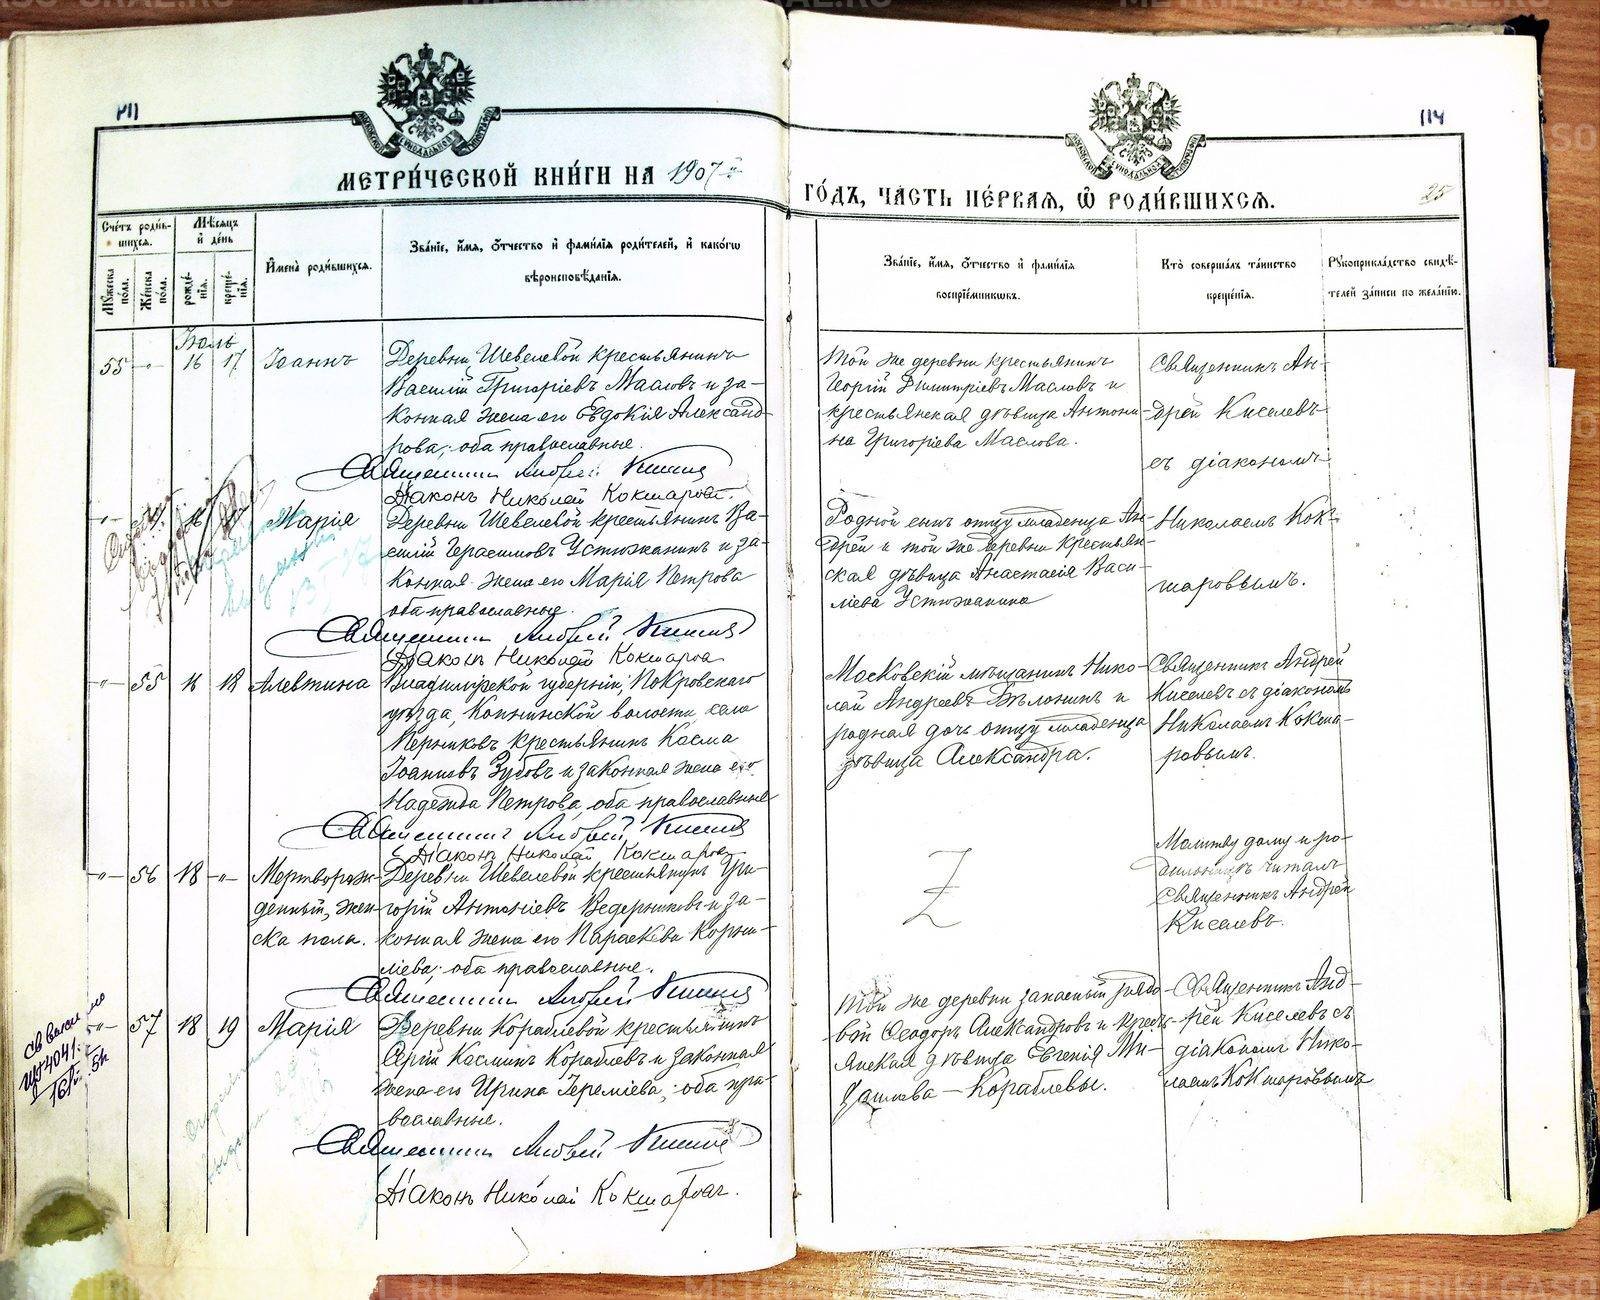 114
МЕТРИ́ЧЕСКОЙ КНИ́ГИ НА 1907й
ГО́ДЪ, ЧА́СТЬ ПЕ́РВАЯ, Ѡ҆ РОДИ́ВШИХСЯ.
25
Сче́тъ роди́в-
шихся.
Му́жеска по́ла.
Же́нска по́ла.
Мѣ́сяцъ
и҆ де́нь
рожде́-нїя.
креще́-нїя.
И҆мена̀ роди́вшихся.
Зва́нїе, и҆́мя, ѻ҆́тчество и҆ фами́лїя роди́телей, и҆ како́гѡ
вѣроисповѣ́данїя.
Зва́нїе, и҆́мя, ѻ҆́тчество и҆ фами́лїя
воспрїе́мникѡвъ.
Кто̀ соверша́лъ та́инство
креще́нїя.
Рукоприкла́дство свидѣ́-
телей за́писи по жела́нїю.
Іюль
55 -"- 16 17 Іоаннъ
Деревни Шевелевой крестьянинъ
Василій Григоріевъ Масловъ и за-
конная жена его Евдокія Александ-
рова; оба православные.
Священникъ Андрей Киселевъ
Діаконъ Николай Кокшаровъ.
Той же деревни крестьянинъ
Георгій Димитріевъ Масловъ и
крестьянская дѣвица Антони-
на Григоріева Маслова.
Священникъ Ан-
дрей Киселевъ
съ діакономъ
Николаемъ Кок-
шаровымъ.
-"- Марія
Деревни Шевелевой крестьянинъ Ва-
силій Герасимовъ Устюжанинъ и за-
конная жена его Марія Петрова
оба православные.
Священникъ Андрей Киселевъ
Діаконъ Николай Кокшаровъ
Родной сынъ отцу младенца Ан-
дрей и той же деревни крестьян-
ская дѣвица Анастасія Васи-
ліева Устюжанина
-"- 55 16 18 Алевтина
Владимірской губерніи, Покровскаго
уѣзда, Копнинской волости, села
крестьянинъ Косма
Іоанновъ Зубовъ и законная жена его
Надежда Петрова, оба православные
Священникъ Андрей Киселевъ
Діаконъ Николай Кокшаровъ
Московскій мѣщанинъ Нико-
лай Андреевъ и
родная дочь отцу младенца
дѣвица Александра.
Священникъ Андрей
Киселевъ съ діакономъ
Николаемъ Кокша-
ровымъ.
-"- 56 18 -"- Мертворож-
денный, жен-
ска пола.
Деревни Шевелевой крестьянинъ Гри-
горій Антоніевъ Ведерниковъ и за-
конная жена его Параскева Корни-
ліева; оба православные.
Священникъ Андрей Киселевъ
Z
Молитву дому и ро-
дильницѣ читалъ
Священникъ Андрей
Киселевъ.
-"- 57 18 19 Марія
Деревни Кораблевой крестьянинъ
Сергій Косминъ Кораблевъ и законная
жена его Ирина Іереміева; оба пра-
вославные.
Священникъ Андрей Киселевъ
Діаконъ Николай Кокшаровъ.
Той же деревни запасный рядо-
вой Ѳеодоръ Александровъ и кресть-
янская дѣвица Евгенія Ми-
хаилова - Кораблевы.
Священникъ Анд-
рей Киселевъ съ
діакономъ Нико-
лаемъ Кокшаровымъ